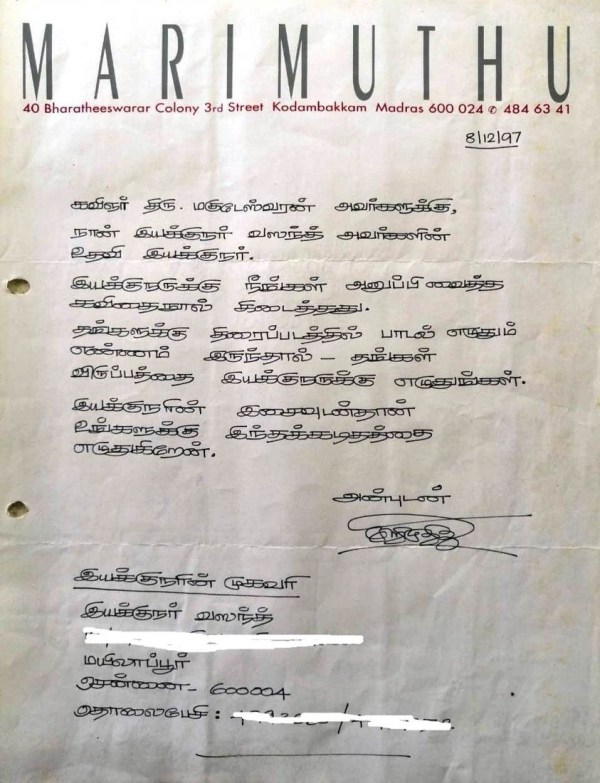 MARIMUTHU
40 Bharatheeswarar Colony 3rd Street Kodambakkam Madras 600 024 ✆ 484 63 41
8/12/97
கவிஞர் திரு. மகுடேஸ்வரன் அவர்களுக்கு,
நான் இயக்குநர் வஸந்த் அவர்களின்
உதவி இயக்குநர்.
இயக்குநருக்கு நீங்கள் அனுப்பிவைத்த
கவிதைநூல் கிடைத்தது.
தங்களுக்கு திரைப்படத்தில் பாடல் எழுதும்
எண்ணம் இருந்தால் - தங்கள்
விருப்பத்தை இயக்குநருக்கு எழுதுங்கள்.
இயக்குநரின் இசைவுடன்தான்
உங்களுக்கு இந்தக்கடிதத்தை
எழுதுகிறேன்.
அன்புடன்
இயக்குநரின் முகவரி
இயக்குநர் வஸந்த்
மயிலாப்பூர்
சென்னை - 600004
தொலைபேசி :